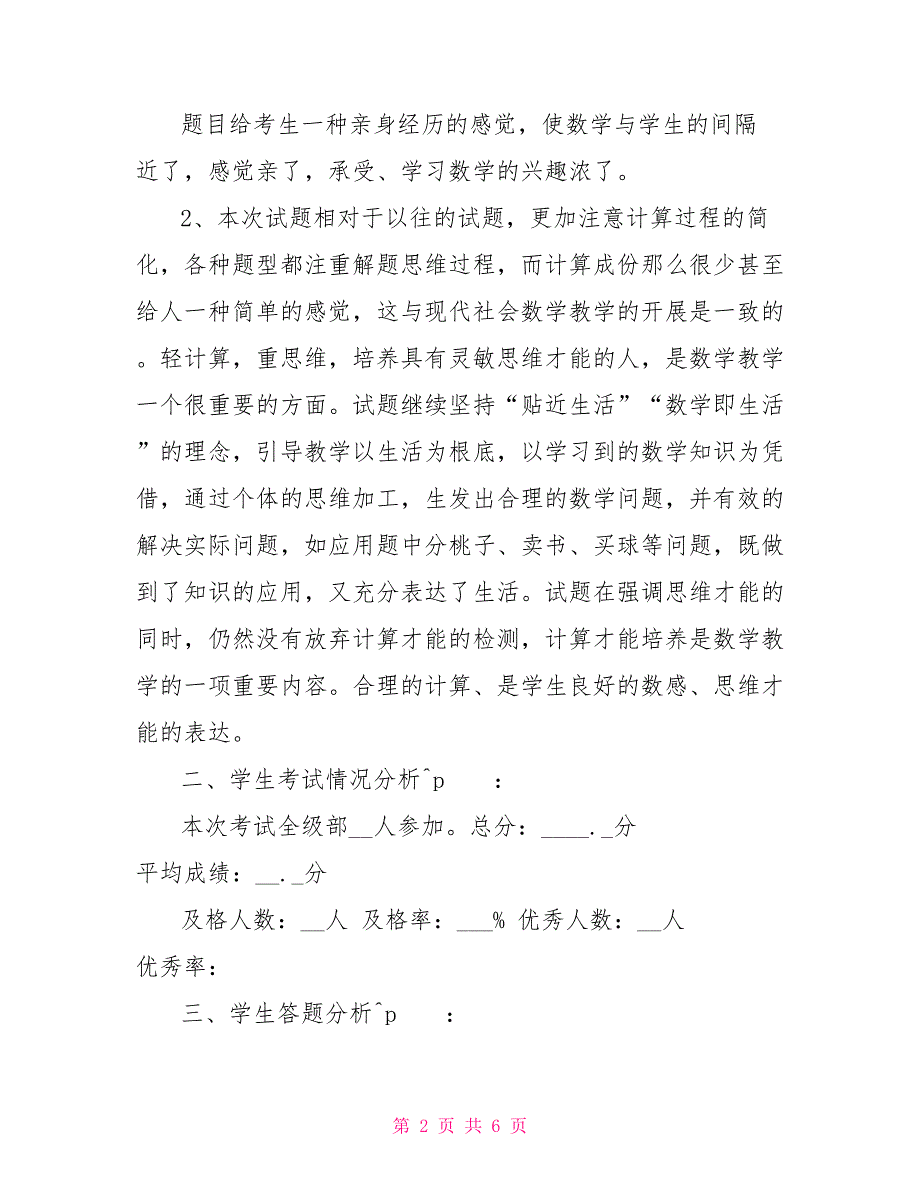 题目给考生一种亲身经历的感觉，使数学与学生的间隔
近了，感觉亲了，承受、学习数学的兴趣浓了。
2、本次试题相对于以往的试题，更加注意计算过程的简
化，各种题型都注重解题思维过程，而计算成份那么很少甚至
给人一种简单的感觉，这与现代社会数学教学的开展是一致的
。轻计算，重思维，培养具有灵敏思维才能的人，是数学教学
一个很重要的方面。试题继续坚持“贴近生活”“数学即生活
”的理念，引导教学以生活为根底，以学习到的数学知识为凭
借，通过个体的思维加工，生发出合理的数学问题，并有效的
解决实际问题，如应用题中分桃子、卖书、买球等问题，既做
到了知识的应用，又充分表达了生活。试题在强调思维才能的
同时，仍然没有放弃计算才能的检测，计算才能培养是数学教
学的一项重要内容。合理的计算、是学生良好的数感、思维才
能的表达。
二、学生考试情况分析^p　　：
本次考试全级部__人参加。总分：____._分
平均成绩：__._分
及格人数：__人 及格率：___% 优秀人数：__人
优秀率：
三、学生答题分析^p　　：
第 2 页 共 6 页